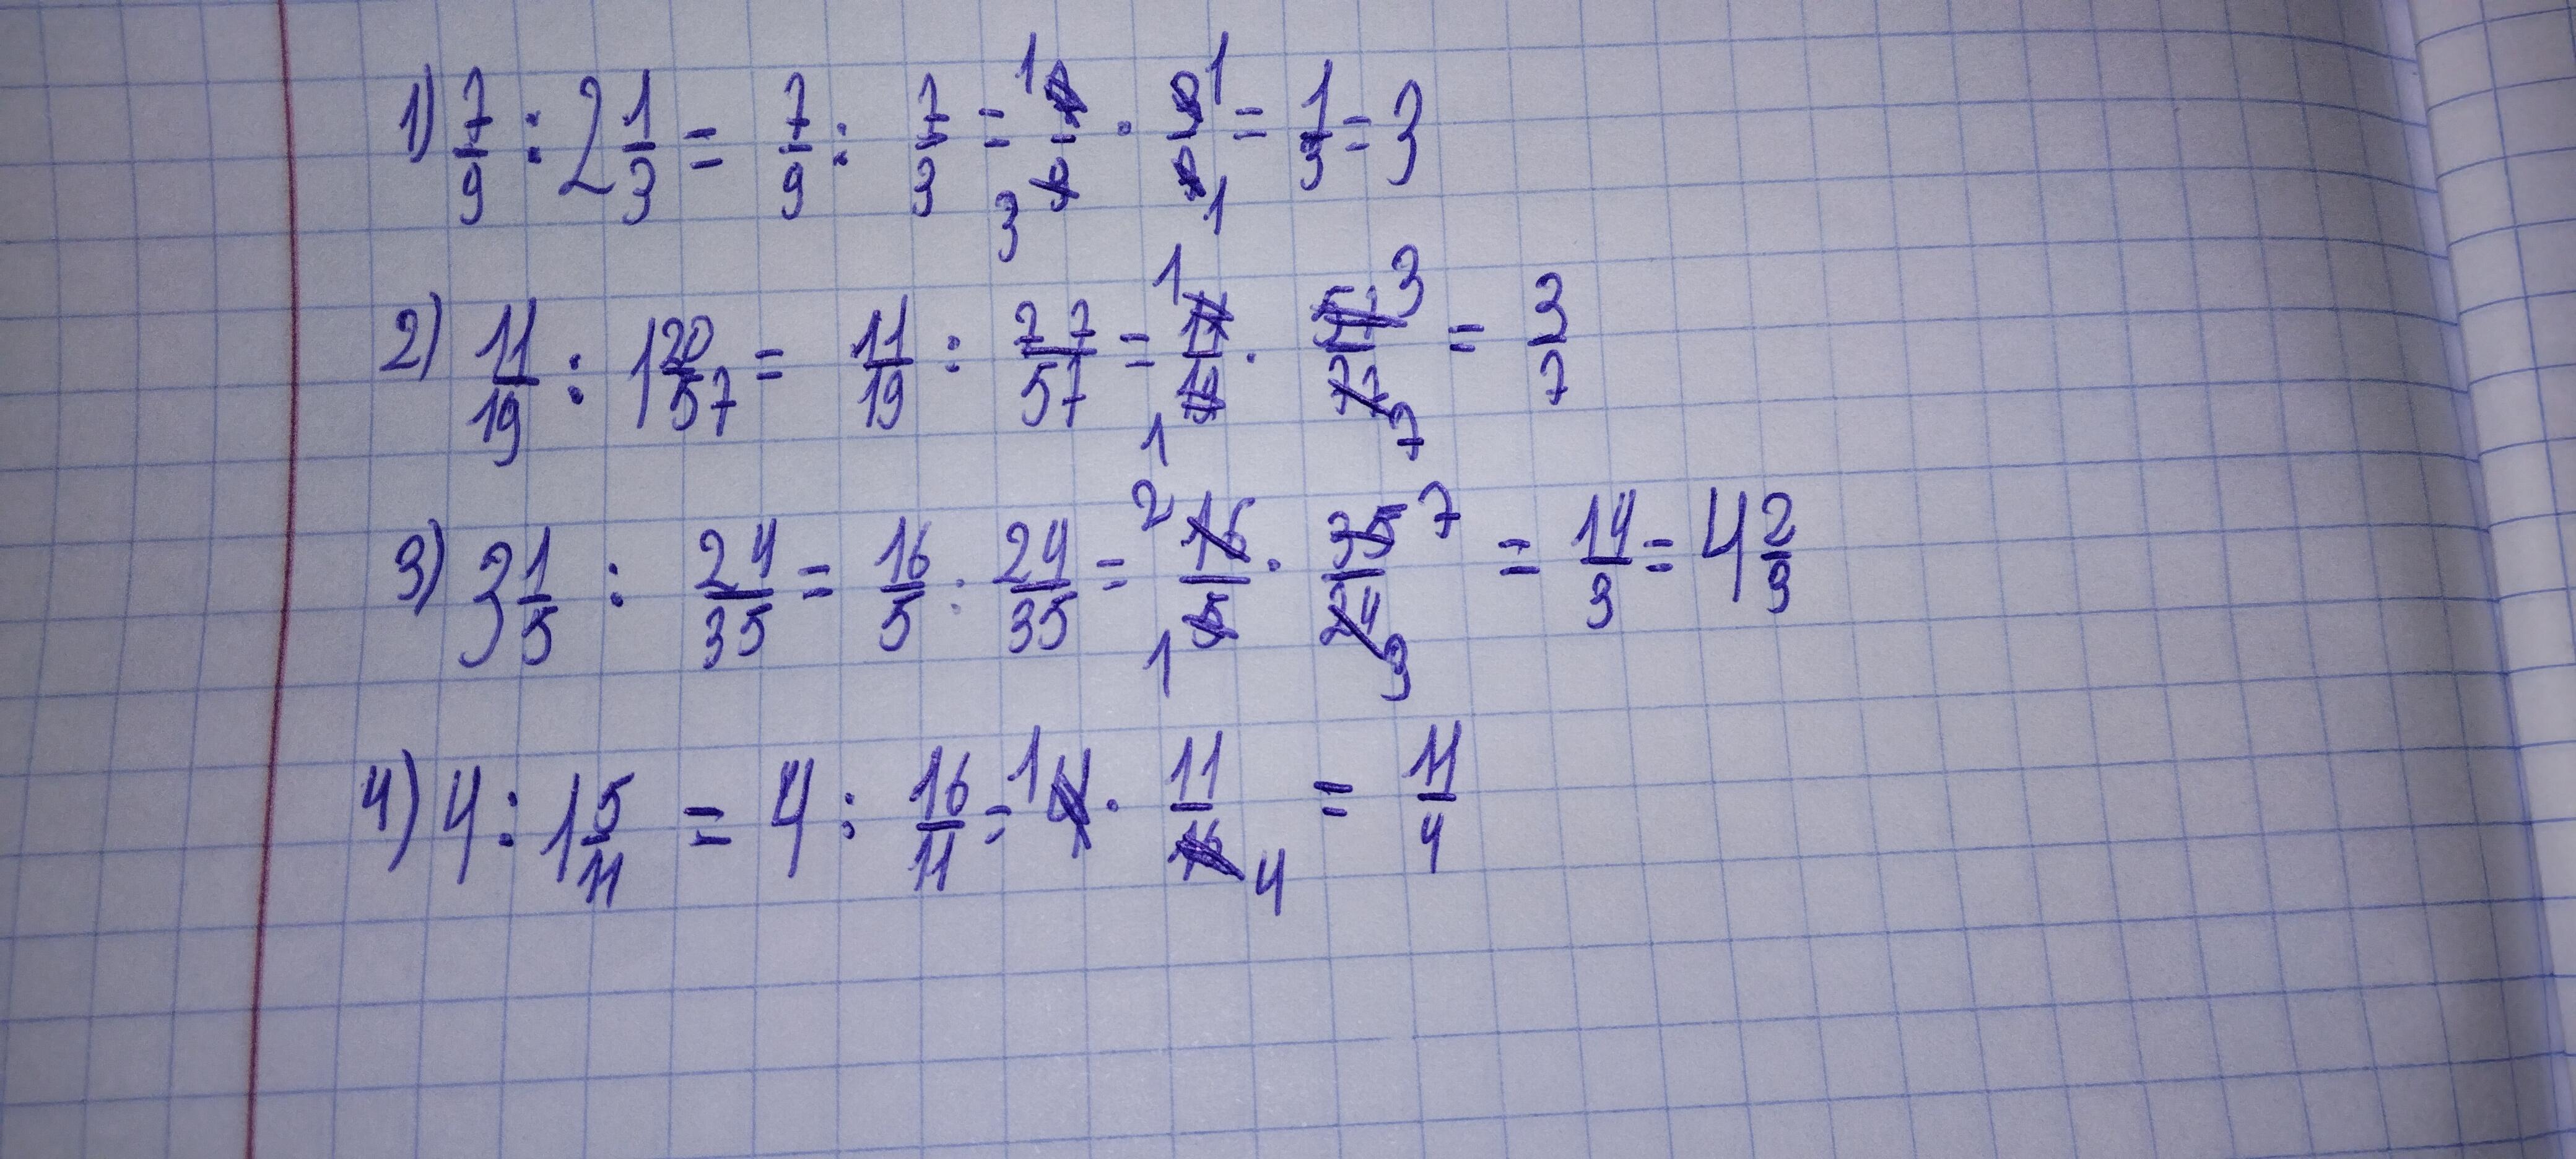 1) 7/9 : 2 1/3 = 7/9 : 7/3 = 1 7/9 3 · 3 1/7 1 = 1/3 = 3
2) 11/19 : 1 20/57 = 11/19 : 77/57 = 1 11/19 1 · 57 3/77 7 = 3/7
3) 3 1/5 : 24/35 = 16/5 : 24/35 = 2 16/5 1 · 35 7/24 3 = 14/3 = 4 2/3
4) 4 : 1 5/11 = 4 : 16/11 = 1 4 · 11/16 4 = 11/4